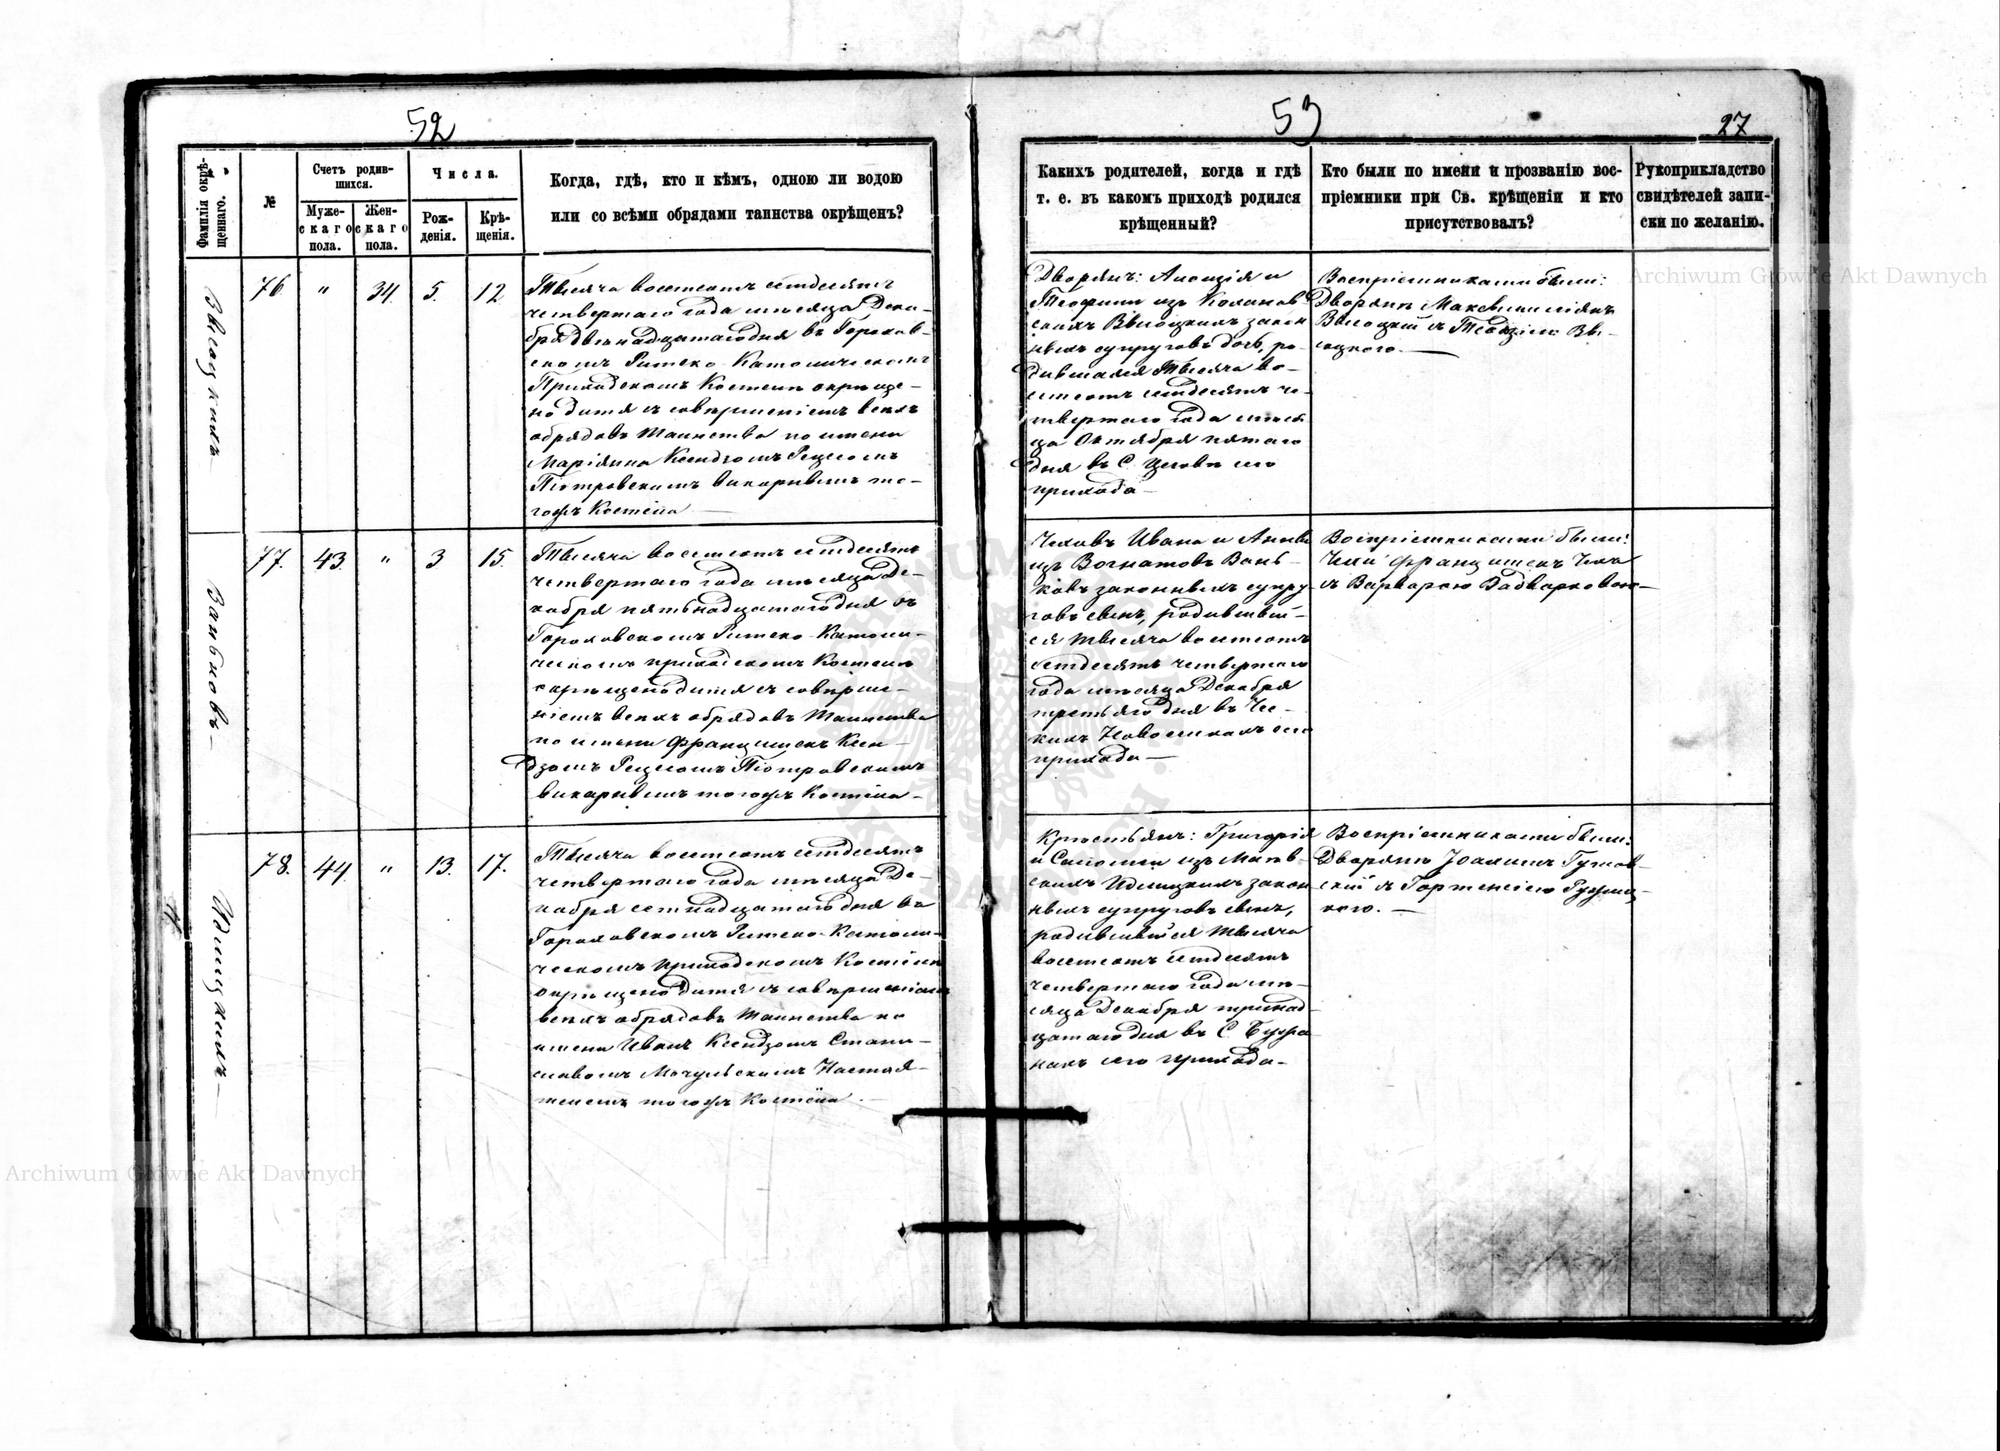 52
Фамилія окрѣ-
щеннаго.
№
Счетъ родив-
шихся.
Муже-
скаго
пола.
Жен-
скаго
пола.
Числа.
Рож-
денія.
Крѣ-
щенія.
Когда, гдѣ, кто и кѣмъ, одною ли водою
или со всѣми обрядами таинства окрѣщенъ?
Высоцкихъ
76.
"
34.
5.
12
Тысяча восемсотъ семдесятъ
четвертаго года мѣсяца Дека-
бря двѣнадцатаго дня въ Горохов-
скомъ Римско-Католическомъ
Приходскомъ Костелѣ окрѣще-
но дитя съ совершеніемъ всехъ
обрядовъ Таинства по имени
Маріянна Ксендзомъ
Піотровскимъ викарнымъ то-
гожъ Костела
Ваньковъ
77.
43.
"
3
15.
Тысяча восемсотъ семдесятъ
четвертаго года мѣсяца Де-
кабря пятьнадцатаго дня въ
Гороховскомъ Римско-Католи-
ческомъ приходскомъ Костелѣ
окрѣщено дитя съ соверше-
ніемъ всехъ обрядовъ Таинства
по имени Францишекъ Ксен-
дзомъ Піотровскимъ
викарнымъ тогожъ Костела
78.
44
"
13.
17.
Тысяча восемсотъ семдесятъ
четвертаго года мѣсяца Де-
кабря семнадцатаго дня въ
Гороховскомъ Римско-Католи-
ческомъ Приходскомъ Костелѣ
окрѣщено дитя съ совершеніемъ
всехъ обрядовъ Таинства по
имени Иванъ Ксендзомъ Стани-
славомъ Мочульскимъ Настоя-
телемъ тогожъ Костёла
53
27
Какихъ родителей, когда и гдѣ
т. е. въ какомъ приходѣ родился
крѣщенный?
Кто были по имени и прозванію вос-
пріемники при Св. крѣщеніи и кто
присутствовалъ?
Рукоприкладство
свидѣтелей запи-
ски по желанію.
Дворянъ: Алоизія и
Теофили изъ
Высоцкихъ закон
ныхъ супруговъ дочь, ро-
дившаяся Тысяча во-
семсотъ семдесятъ че-
твертаго года мѣся
ца Октября пятаго
дня въ С. сего
прихода
Воспріемниками были:
Дворяне Максимиліянъ
Высоцкій съ Вы-
соцкою.
Чеховъ Ивана и Анны
изъ Вань-
ковъ законныхъ супру-
говъ сынъ, родившій-
ся тысяча восемсотъ
семдесятъ четвертаго
года мѣсяца Декабря
третьяго дня въ Чес-
кихъ Новоселкахъ сего
прихода
Воспріемниками были:
Чехи Францишекъ Чехъ
съ Варварою
Крестьянъ: Григорія
и Саломеи изъ
закон
ныхъ супруговъ сынъ,
родившійся тысяча
восемсотъ семдесятъ
четвертаго года мѣ-
сяца Декабря тринад-
цатаго дня въ С.
сего прихода
Воспріемниками были:
Дворяне
скій съ Гортензіею
кою.
Archiwum Główne Akt Dawnych
Archiwum Główne Akt Dawnych